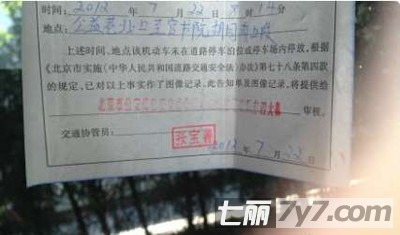 时间：2012 年 7 月 22 日 8 时 14分
地点：公益巷北口
上述时间、地点该机动车未在道路停车泊位或停车场内停放，根据
《北京市实施〈中华人民共和国道路交通安全法〉办法》第七十八条第四款
的规定，已对以上事实作了图像记录，此告知单及图像记录，将提供给
北京市公安局公安交通管理局 审核。
交通协管员：
2012 年 7 月 22 日
七丽7y7.com